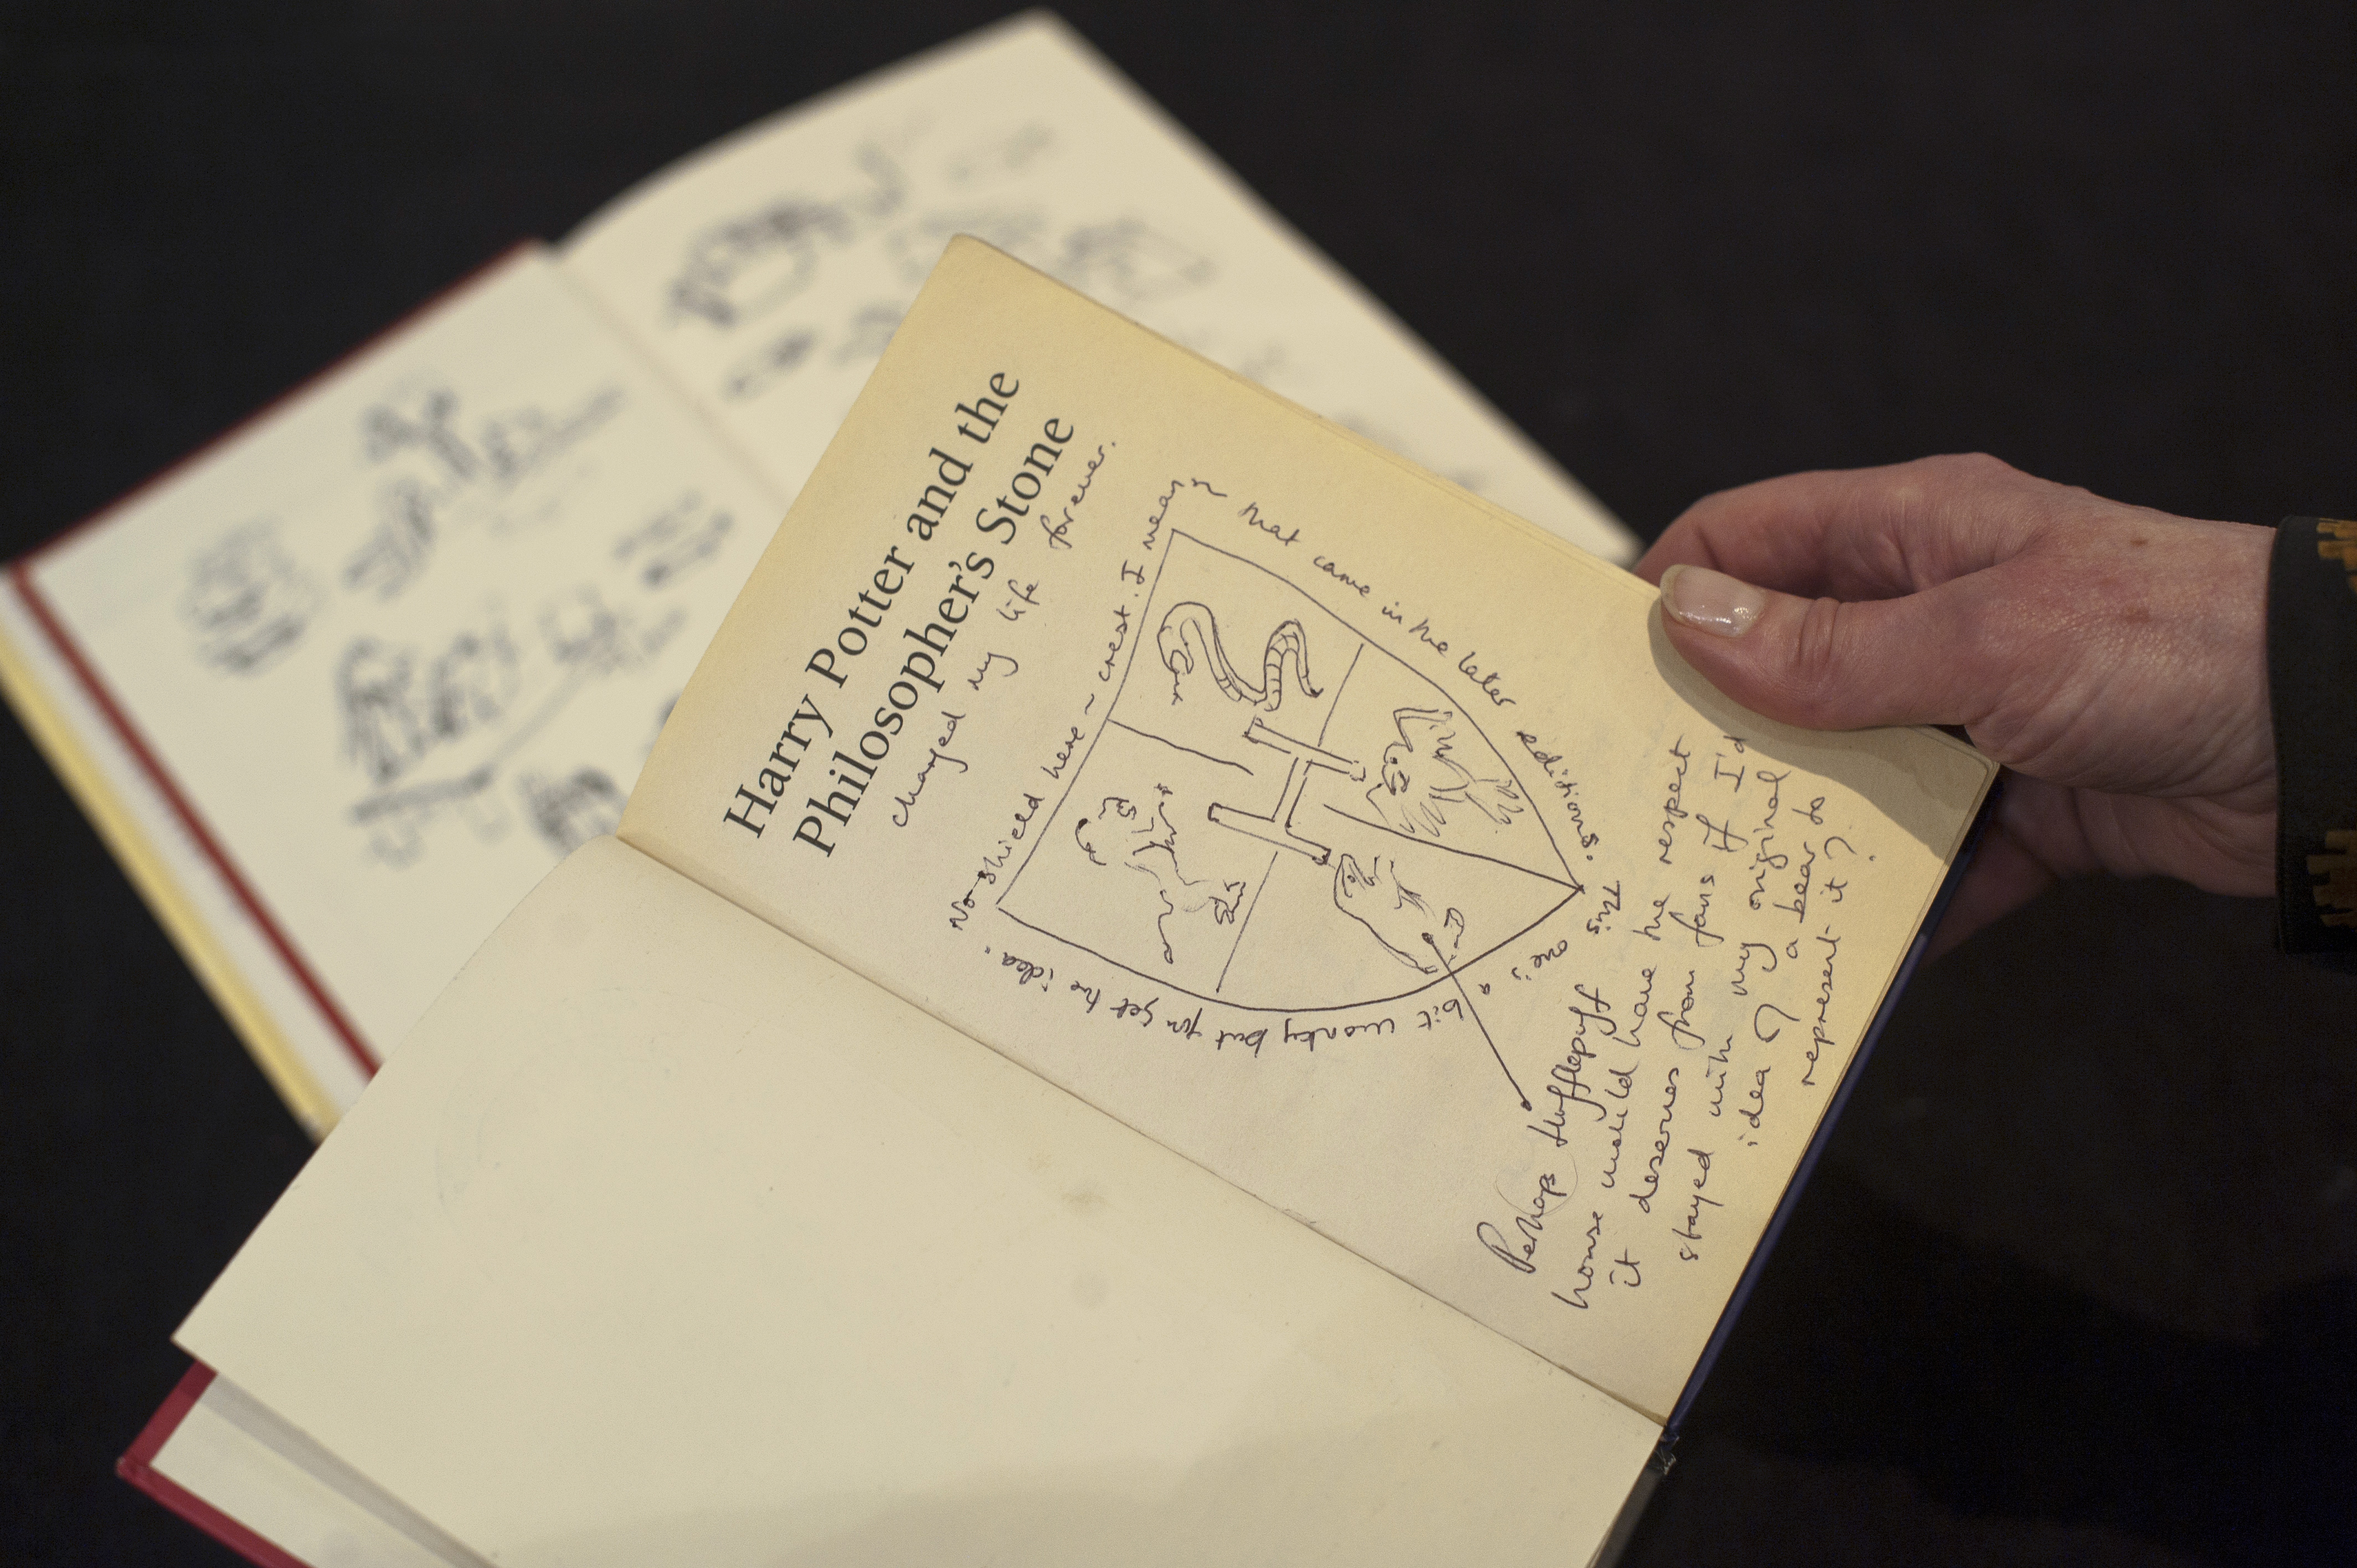 Harry Potter and the
Philosopher's Stone
changed my life forever.
No shield here ~ crest. I mean
that came in the later editions.
This one is a
bit wonky but you get the idea.
H
Perhaps Hufflepuff
house would have the respect
it deserves from fans if I'd
stayed with my original
idea of a bear to
represent it?